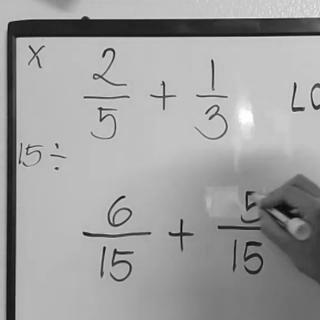 x 2/5 + 1/3 LC
15 ÷
6/15 + 5/15